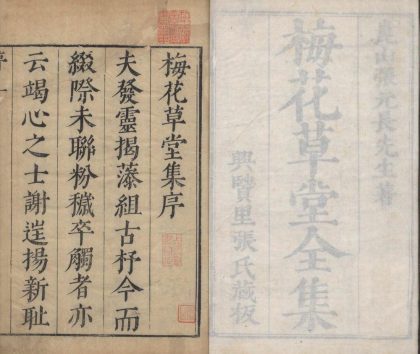 崑山張元長先生著
梅花草堂全集
興賢里張氏藏板
梅花草堂集序
夫發靈揭藻組古杼今而
綴際未聯粉穢卒斶者亦
云竭心之士謝遑揚新耻